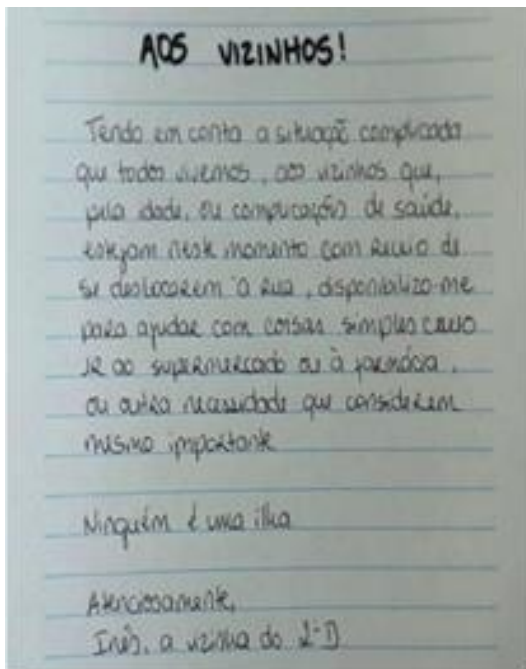 AOS VIZINHOS!
Tendo em conta a situação complicada
que todos vivemos, aos vizinhos que,
pela idade, ou complicações de saúde,
estejam neste momento com receio de
se deslocarem à rua, disponibilizo-me
para ajudar com coisas simples como
ir ao supermercado ou à farmácia,
ou outra necessidade que considerem
mesmo importante
Ninguém é uma ilha
Atenciosamente,
Inês, a vizinha do 2-D